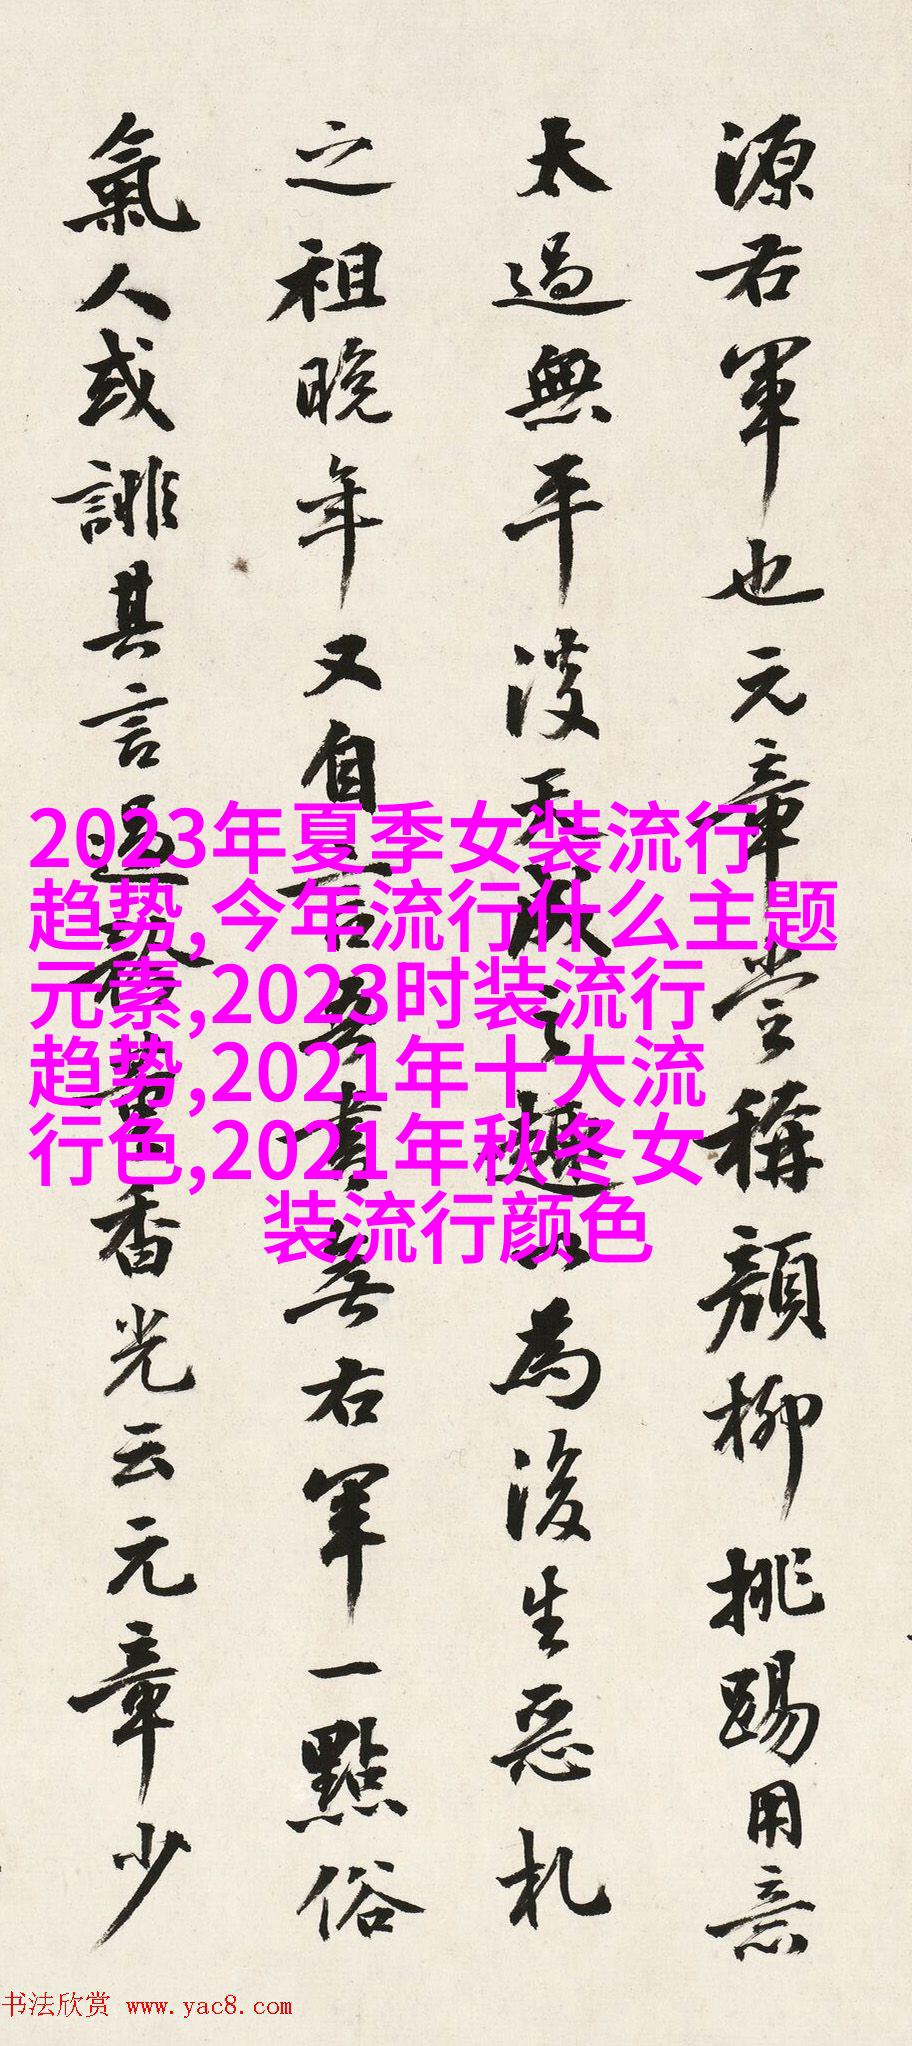 源右軍也元章嘗稱顏柳挑踢用意
太過無平淡天成之趣以為後生惡札
之祖晚年又自言吾書無右軍一點俗
氣人或誹其言過董香光云元章少
2023年夏季女装流行
趋势,今年流行什么主题
元素,2023时装流行
趋势,2021年十大流
行色,2021年秋冬女
装流行颜色
书法欣赏 www.yac8.com